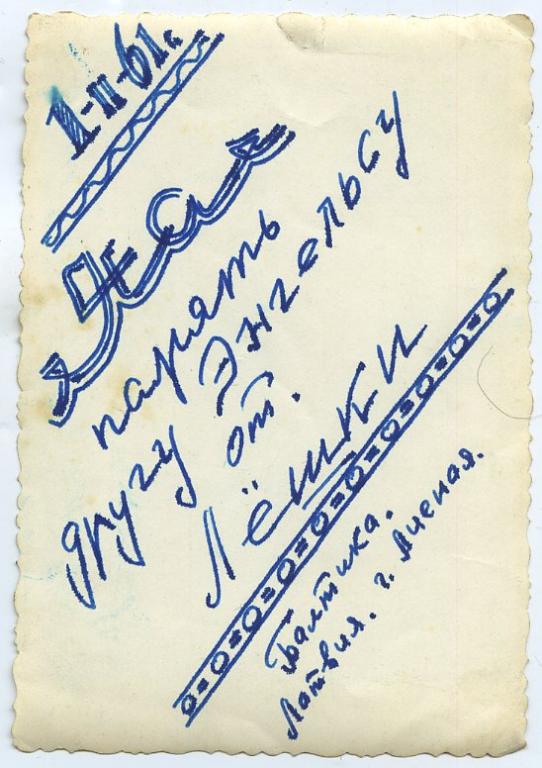 1-II-61г.
На
память
другу Энгельсу
от.
Лёшки
Балтика.
Латвия. г. Лиепая.